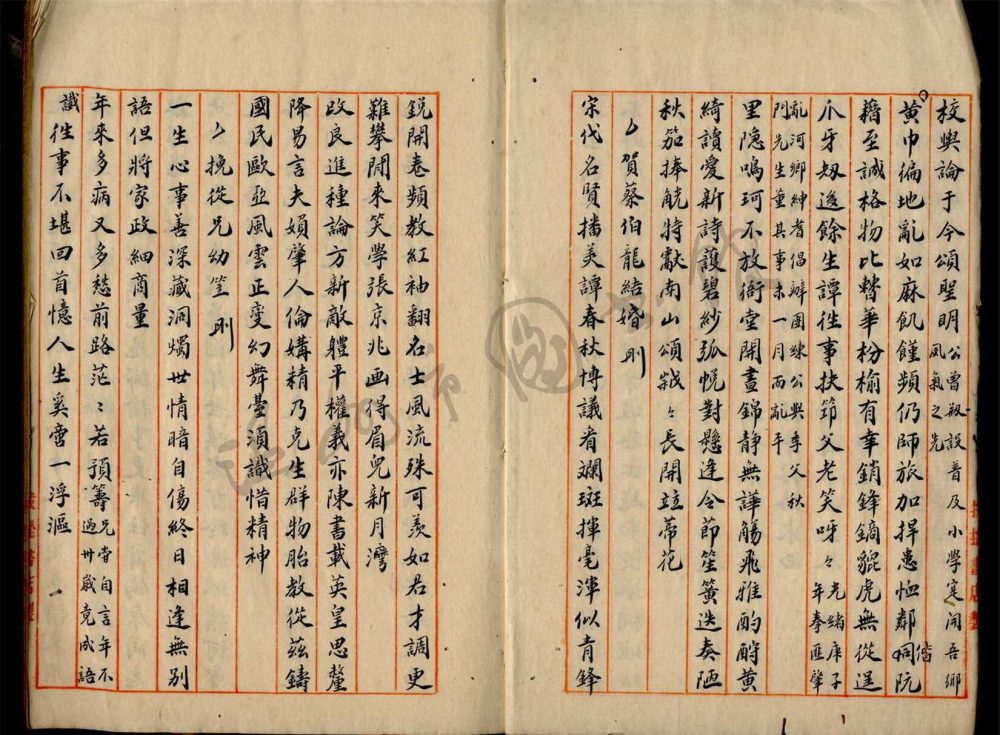 校輿論于今頌聖明公曾叔設普及小學寔開吾鄉風氣之先
黃巾徧地亂如麻飢饉頻仍師旅加捍患恤鄰同阮
偕
藉至誠格物比暬華枌榆有幸銷鋒鏑貔虎無從逞
爪牙刼後餘生譚徃事扶筇父老笑呀々光緒庚子年拳匪肇
亂河鄉紳耆倡辦團練公與季父秋門先生董其事未一月而亂平
里隐鳴珂不放衙堂開晝錦靜無譁觴飛雅酌酹黃
綺讀愛新詩護碧紗弧帨對懸逢令節笙簧迭奏陋
秋笳捧觥特獻南山頌韍々長開竝蒂花
賀蔡伯龍結婚則
宋代名賢播美譚春秋博議看斕斑揮毫渾似青鋒
銳開卷頻教紅袖翻名士風流殊可羨如君才調更
難攀閒來笑學張京兆画得眉兒新月灣
改良進種論方新敵體平權義亦陳書載英皇思釐
降易言夫婦肇人倫媾精乃克生群物胎教從茲鑄
國民歐亞風雲正變幻舞臺須識惜精神
挽從兄幼笙則
一生心事善深藏洞燭世情暗自傷終日相逢無別
語但將家政細商量
年來多病又多愁前路茫々若預籌兄嘗自言年不過卅歲竟成語
讖徃事不堪回首憶人生奚啻一浮漚